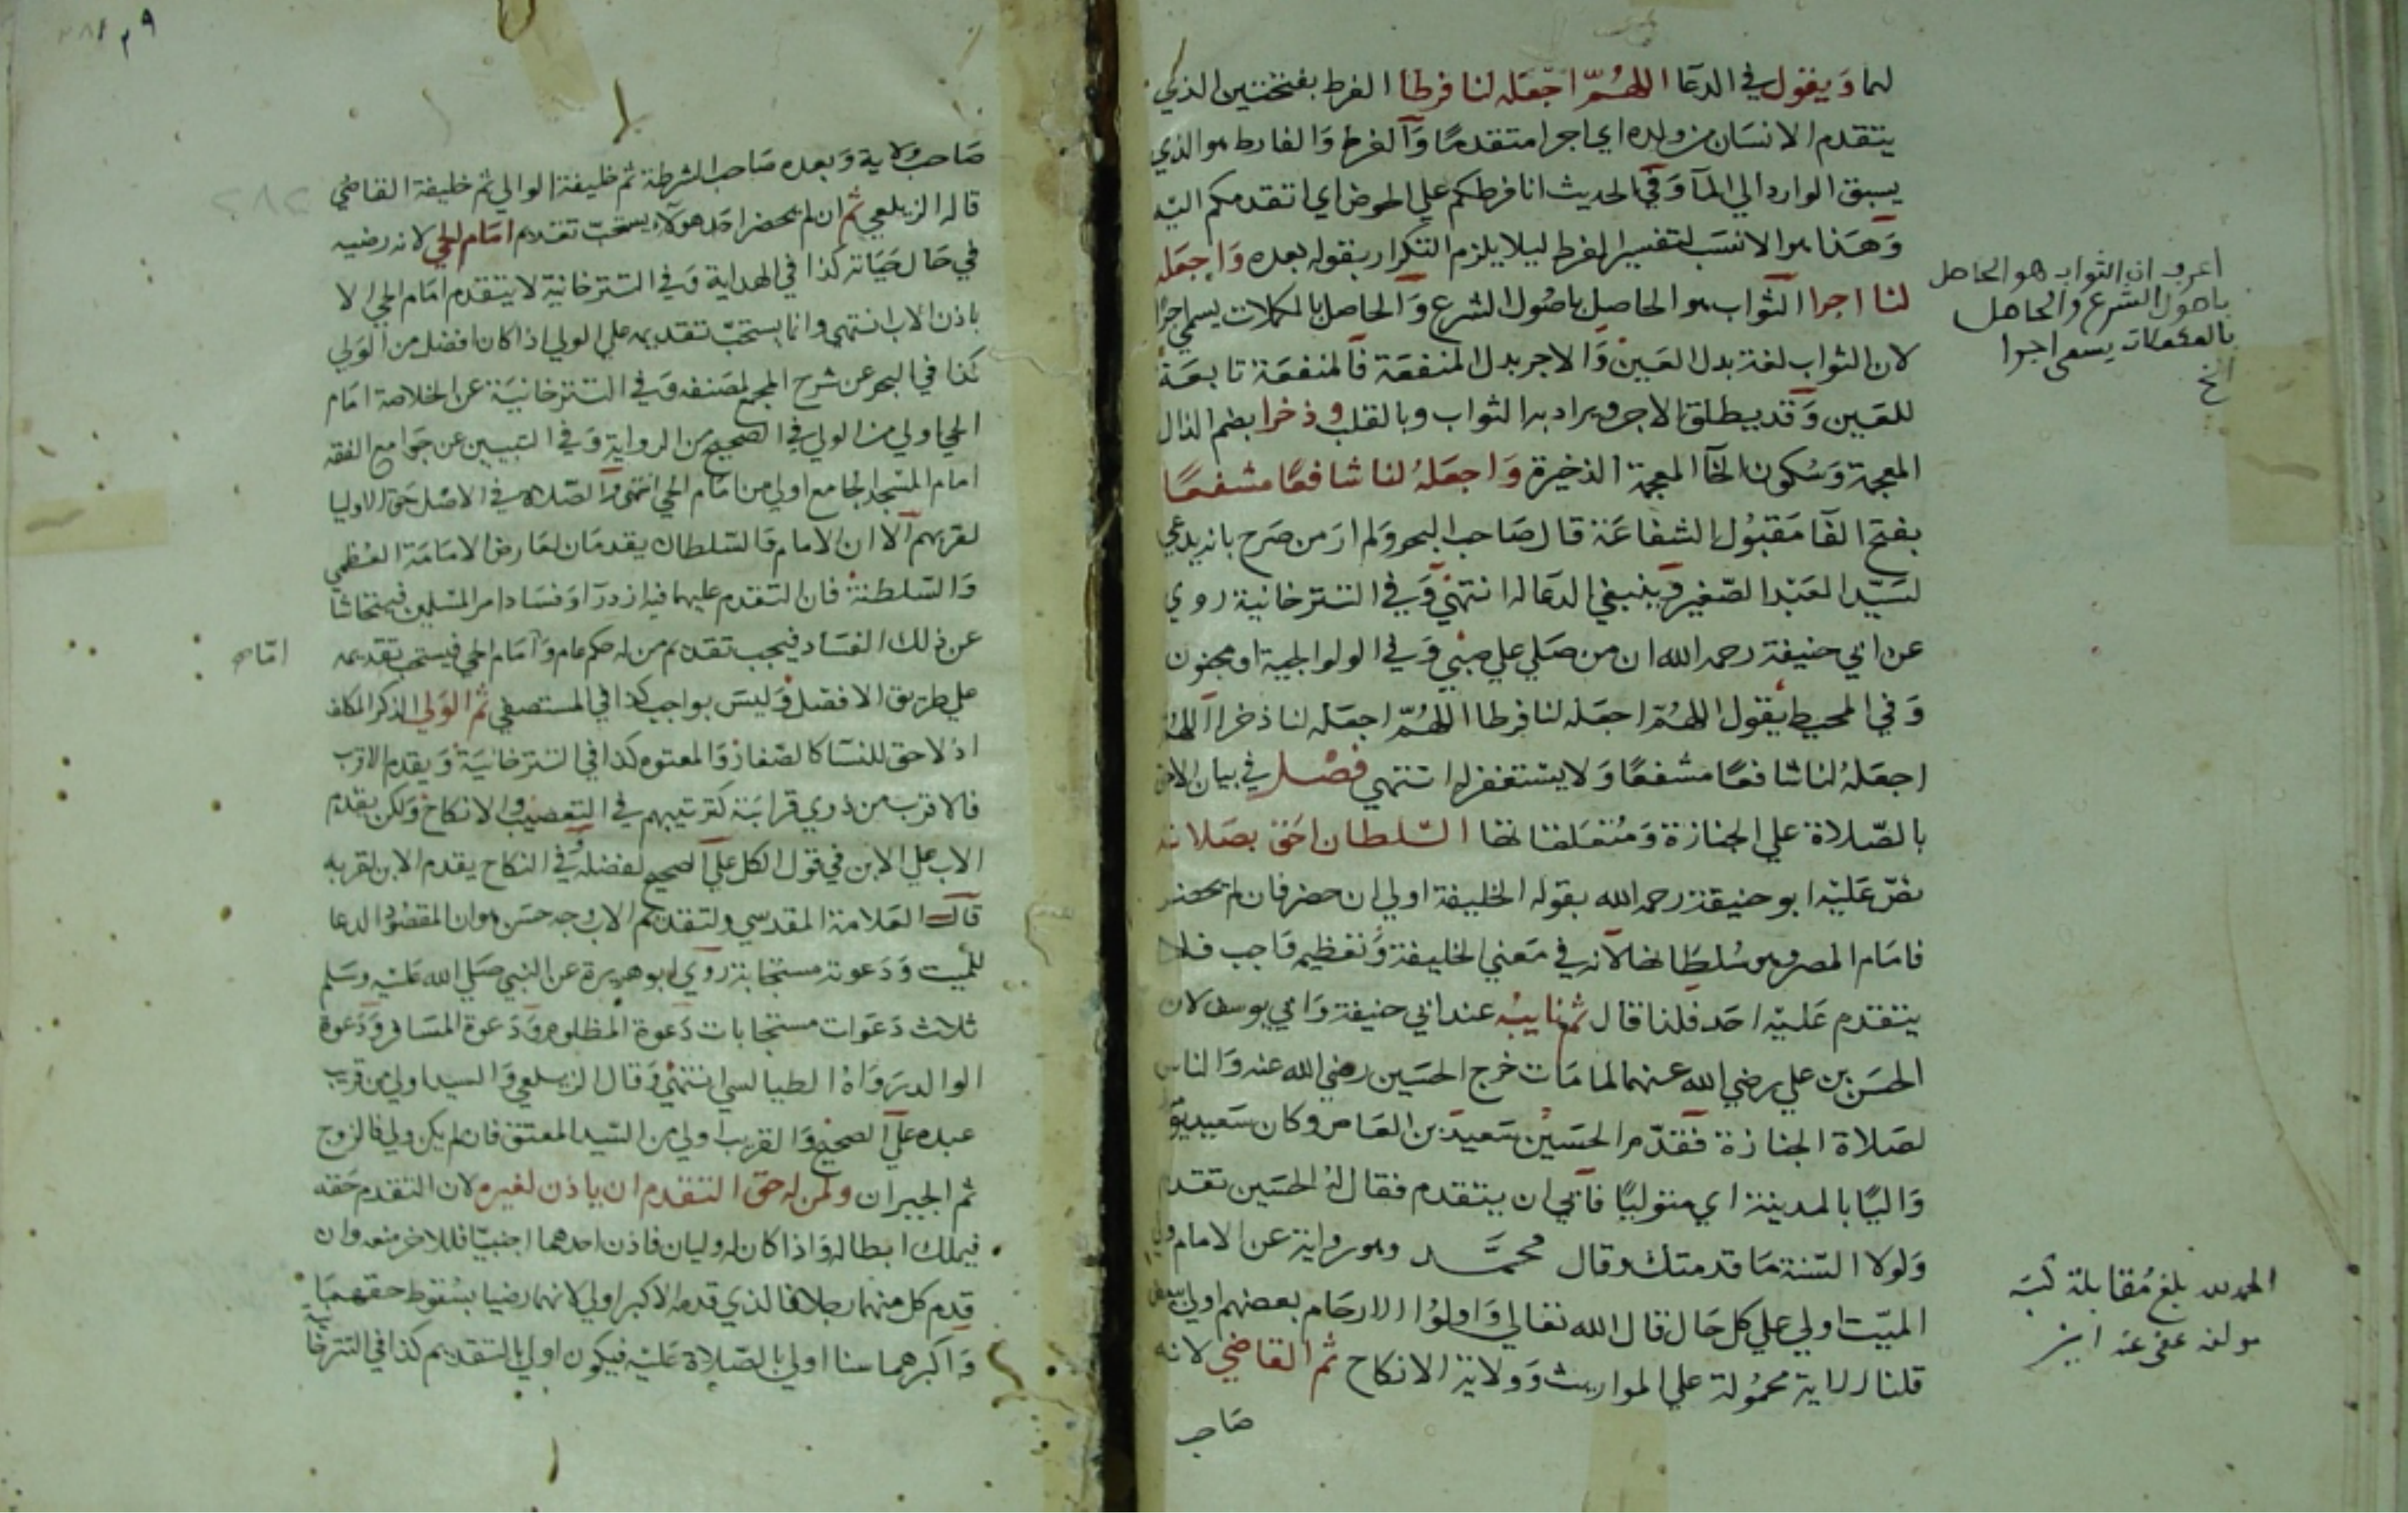 لهما ويقول في الدعا اللهم اجعله لنا فرطا الفرط بفتحتين الذي
يتقدم الانسان من ولده اي اجرا متقدما والفرط والفارط هو الذي
يسبق الوارد الي الما وفي الحديث انا فرطكم علي الحوض اي اتقدمكم اليه
وهذا هو الانسب لتفسير الفرط ليلا يلزم التكرار بقوله بعده واجعله
لنا اجرا الثواب هو الحاصل باصول الشرع والحاصل بالمكملات يسمي اجرا
لان الثواب لغة بدل العين والاجر بدل المنفعة فالمنفعة تابعة
للعين وقد يطلق الاجر ويراد به الثواب وبالقلب وذخرا بضم الذال
المعجمة وسكون الخآ المعجمة الذخيرة واجعله لنا شافعا مشفعا
بفتح الفآ مقبول الشفاعة قال صاحب البحر ولم ار من صرح بانه يدعي
لسيد العبد الصغير وينبغي الدعا له انتهي وفي التترخانية روي
عن ابي حنيفة رحمه الله ان من صلي علي صبي وفي الولوالجية او مجنون
وفي المحيط يقول اللهم اجعله لنا فرطا اللهم اجعله لنا ذخرا اللهم
اجعله لنا شافعا مشفعا ولا يستغفر له انتهي فصل في بيان الاحق
بالصلاة علي الجنازة ومتعلقاتها السلطان احق بصلاته
نص عليه ابو حنيفة رحمه الله بقوله الخليفة اولي ان حضر فان لم يحضر
فامام المصر وهو سلطانها لانه في معني الخليفة وتعظيمه واجب فلا
يتقدم عليه احد فلنا قال ثم نايبه عند ابي حنيفة وابي يوسف لان
الحسن بن علي رضي الله عنهما لما مات خرج الحسين رضي الله عنه والناس
لصلاة الجنازة فقدم الحسين سعيد بن العاص وكان سعيد يو
واليا بالمدينة اي متوليا فابي ان يتقدم فقال له الحسين تقدم
ولولا السنة ما قدمتك وقال محمد وهو رواية عن الامام ولي
الميت اولي علي كل حال قال الله تعالي واولوا الارحام بعضهم اولي ببعض
قلنا الاية محمولة علي المواريث وولاية الانكاح ثم القاضي لانه
صاحب
اعرف ان الثواب هو الحاصل
باصول الشرع والحاصل
بالمكملات يسمى اجرا
الخ
الحمد لله بلغ مقابلة كتبه
مولفه عفى عنه
صاحب ولاية وبعده صاحب الشرطة ثم خليفة الوالي ثم خليفة القاضي
قاله الزيلعي ثم ان لم يحضر احد هولاء يستحب تقديم امام الحي لانه رضيه
في حال حياته كذا في الهداية وفي التترخانية لا يتقدم امام الحي الا
باذن الاب انتهي وانما يستحب تقديمه علي الولي اذا كان افضل من الولي
كذا في البحر عن شرح المجمع لمصنفه وفي التترخانية عن الخلاصة امام
الحي اولي من الولي في الصحيح من الرواية وفي التبيين عن جوامع الفقه
امام المسجد الجامع اولي من امام الحي انتهي والصلاة في الاصل حق الاوليا
لقربهم الا ان الامام والسلطان يقدمان لعارض الامامة العظمي
والسلطنة فان التقدم عليهما فيه ازدرآ وفساد امر المسلمين فيتحاشا
عن ذلك الفساد فيجب تقديم من له حكم عام وامام الحي فيستحب تقديمه
علي طريق الافضل وليس بواجب كذا في المستصفي ثم الولي الذكر المكلف
اذ لا حق للنسآ كالصغار والمعتوه كذا في التترخانية ويقدم الاقرب
فالاقرب من ذوي قرابته كترتيبهم في التعصيب والانكاح ولكن يقدم
الاب علي الابن في قول الكل علي الصحيح لفضله وفي النكاح يقدم الابن لقربه
قال العلامة المقدسي ولتقديم الاب وجه حسن هو ان المقصود الدعا
للميت ودعوته مستجابة روي ابو هريرة عن النبي صلي الله عليه وسلم
ثلاث دعوات مستجابات دعوة المظلوم ودعوة المسافر ودعوة
الوالد رواه الطيالسي انتهي وقال الزيلعي والسيد اولي من قريب
عبده علي الصحيح والقريب اولي من السيد المعتق فان لم يكن ولي فالزوج
ثم الجيران ولمن له حق التقدم ان ياذن لغيره لان التقدم حقه
فيملك ابطاله واذا كان له وليان فاذن احدهما اجنبيا فللاخر منعه وان
قدم كل منهما رجلا فالذي قدمه الاكبر اولي لانهما رضيا بسقوط حقهما
واكبرهما سنا اولي بالصلاة عليه فيكون اولي بالتقديم كذا في التترخانية